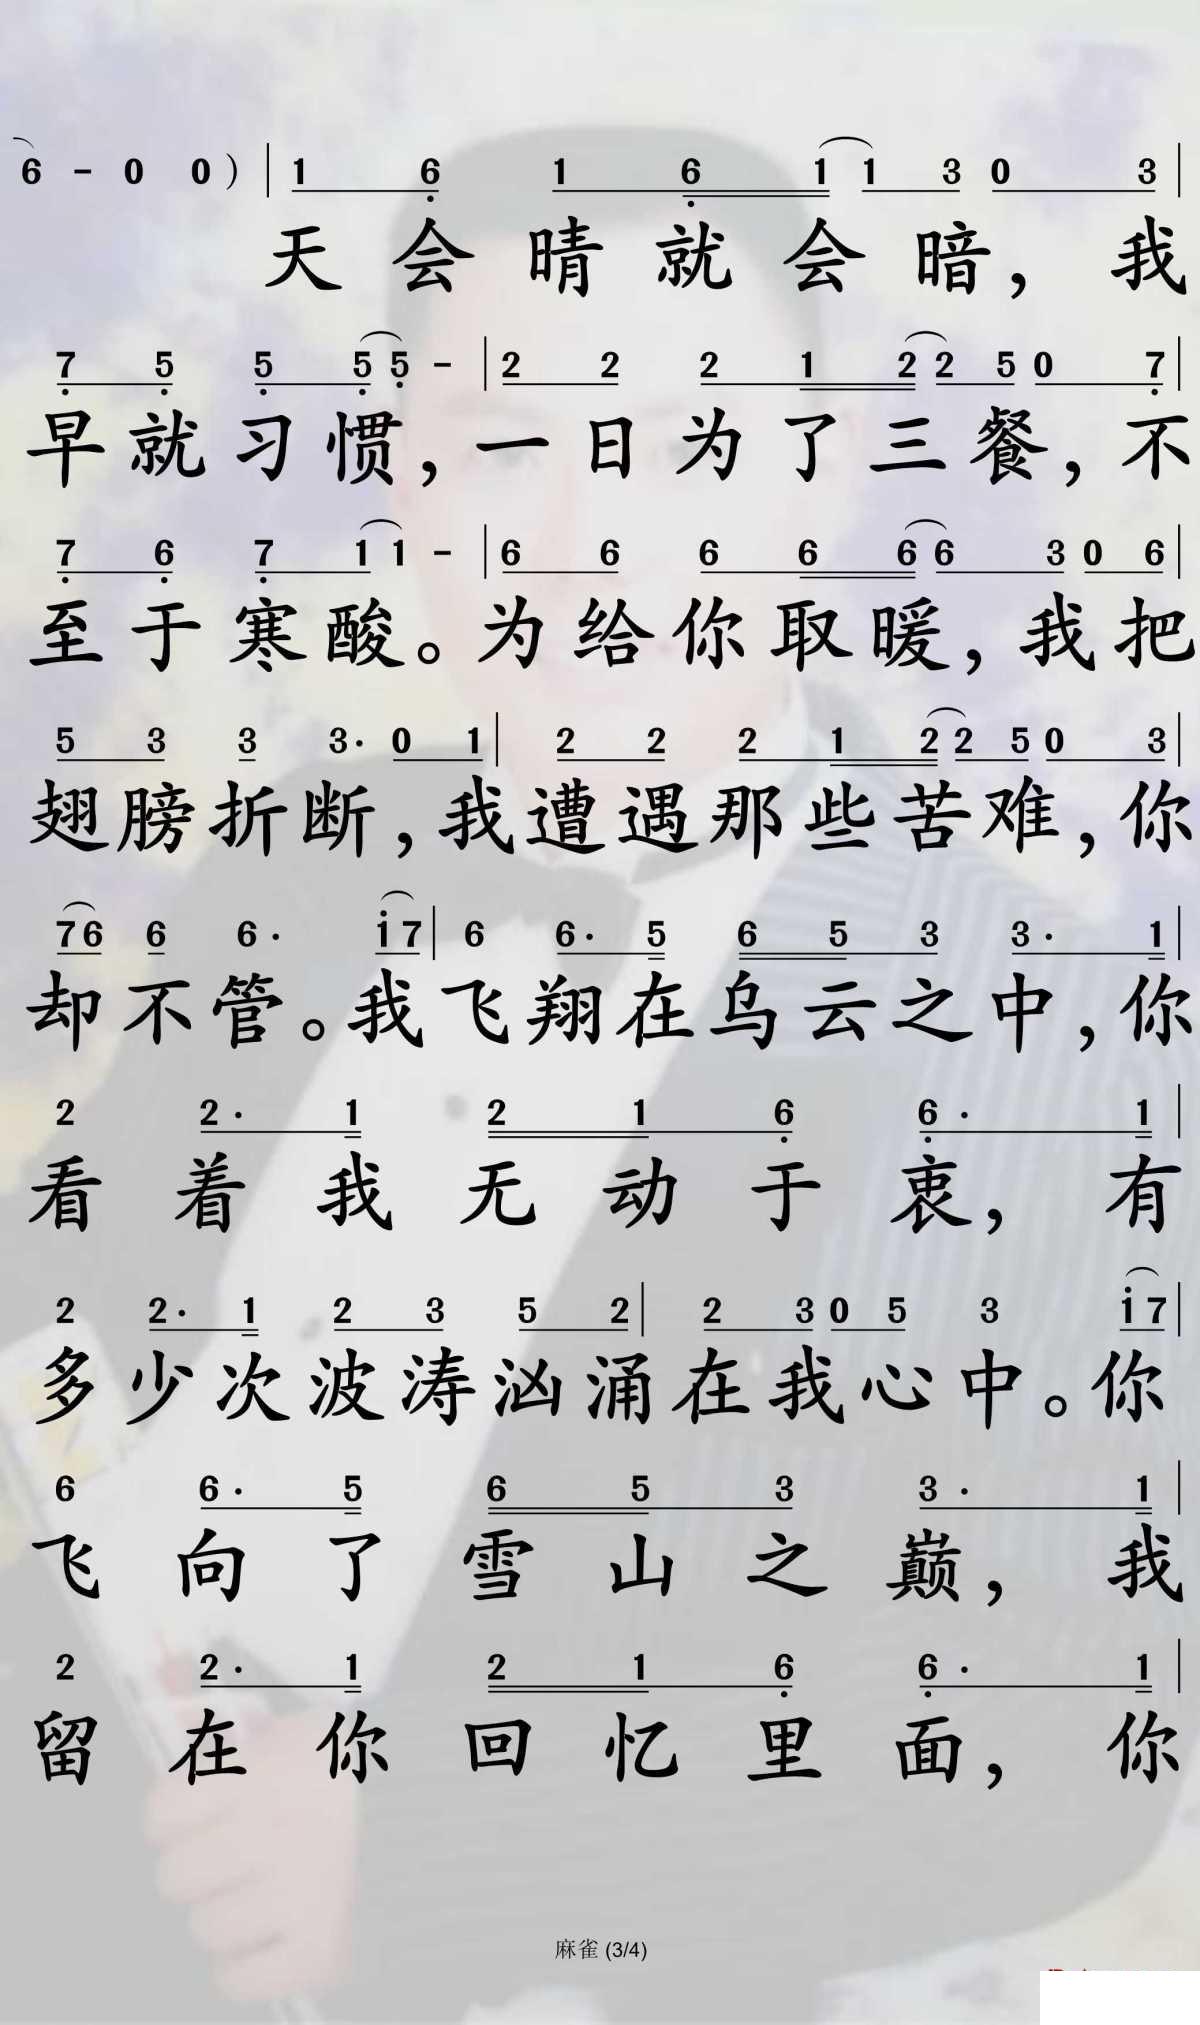 6 - 0 0 ) | 1 6 1 6 1 1 3 0 3 |
天会晴就会暗，我
7 5 5 5 5 - | 2 2 2 1 2 2 5 0 7 |
早就习惯，一日为了三餐，不
7 6 7 1 1 - | 6 6 6 6 6 6 3 0 6 |
至于寒酸。为给你取暖，我把
5 3 3 3· 0 1 | 2 2 2 1 2 2 5 0 3 |
翅膀折断，我遭遇那些苦难，你
7 6 6 6· i 7 | 6 6· 5 6 5 3 3· 1 |
却不管。我飞翔在乌云之中，你
2 2· 1 2 1 6 6· 1 |
看着我无动于衷，有
2 2· 1 2 3 5 2 | 2 3 0 5 3 i 7 |
多少次波涛汹涌在我心中。你
6 6· 5 6 5 3 3· 1 |
飞向了雪山之巅，我
2 2· 1 2 1 6 6· 1 |
留在你回忆里面，你
麻雀 (3/4)